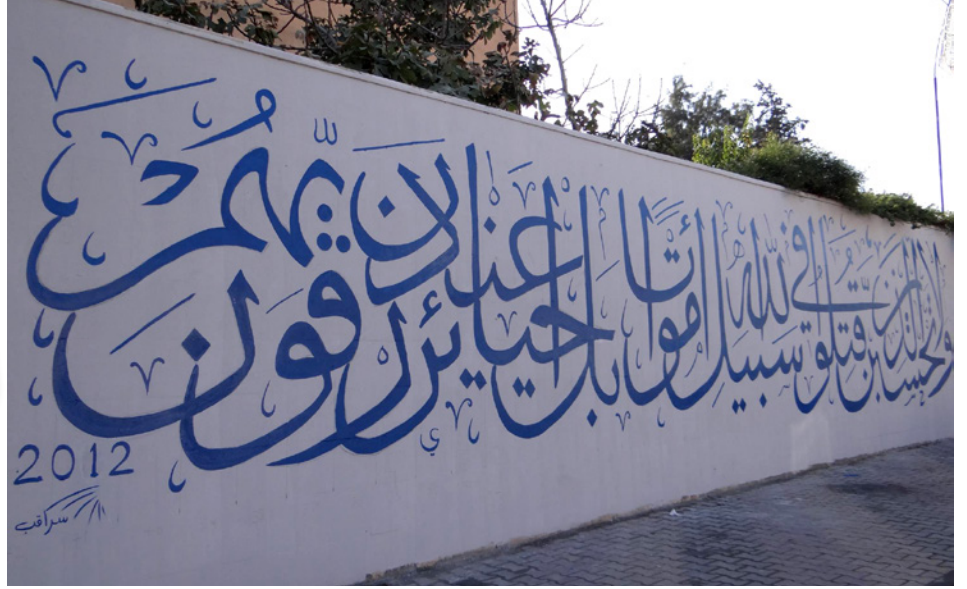 ولا تحسبن الذين قتلوا في سبيل الله أمواتا بل أحياء عند ربهم يرزقون
2012
سراقب